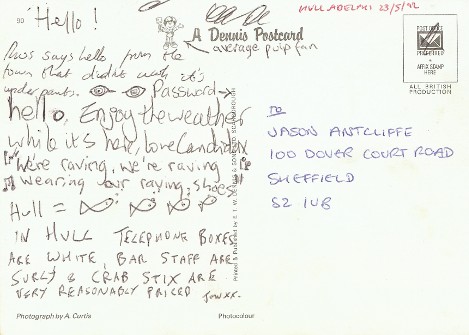 90
"Hello!
Russ says hello from the
town that didn't wash it's
underpants. Password →
hello. Enjoy the weather
while its here, love Candida x
"We're raving, we're raving
wearing our raving shoes"
Hull =
IN HULL TELEPHONE BOXES
ARE WHITE, BAR STAFF ARE
SURLY & CRAB STIX ARE
VERY REASONABLY PRICED
Photograph by A. Curtis
Photocolour
A Dennis Postcard
average pulp fan
HULL ADELPHI 23/5/92
AFFIX STAMP
HERE
ALL BRITISH
PRODUCTION
TO
JASON ANTCLIFFE
100 DOVER COURT ROAD
SHEFFIELD
S2 1UB